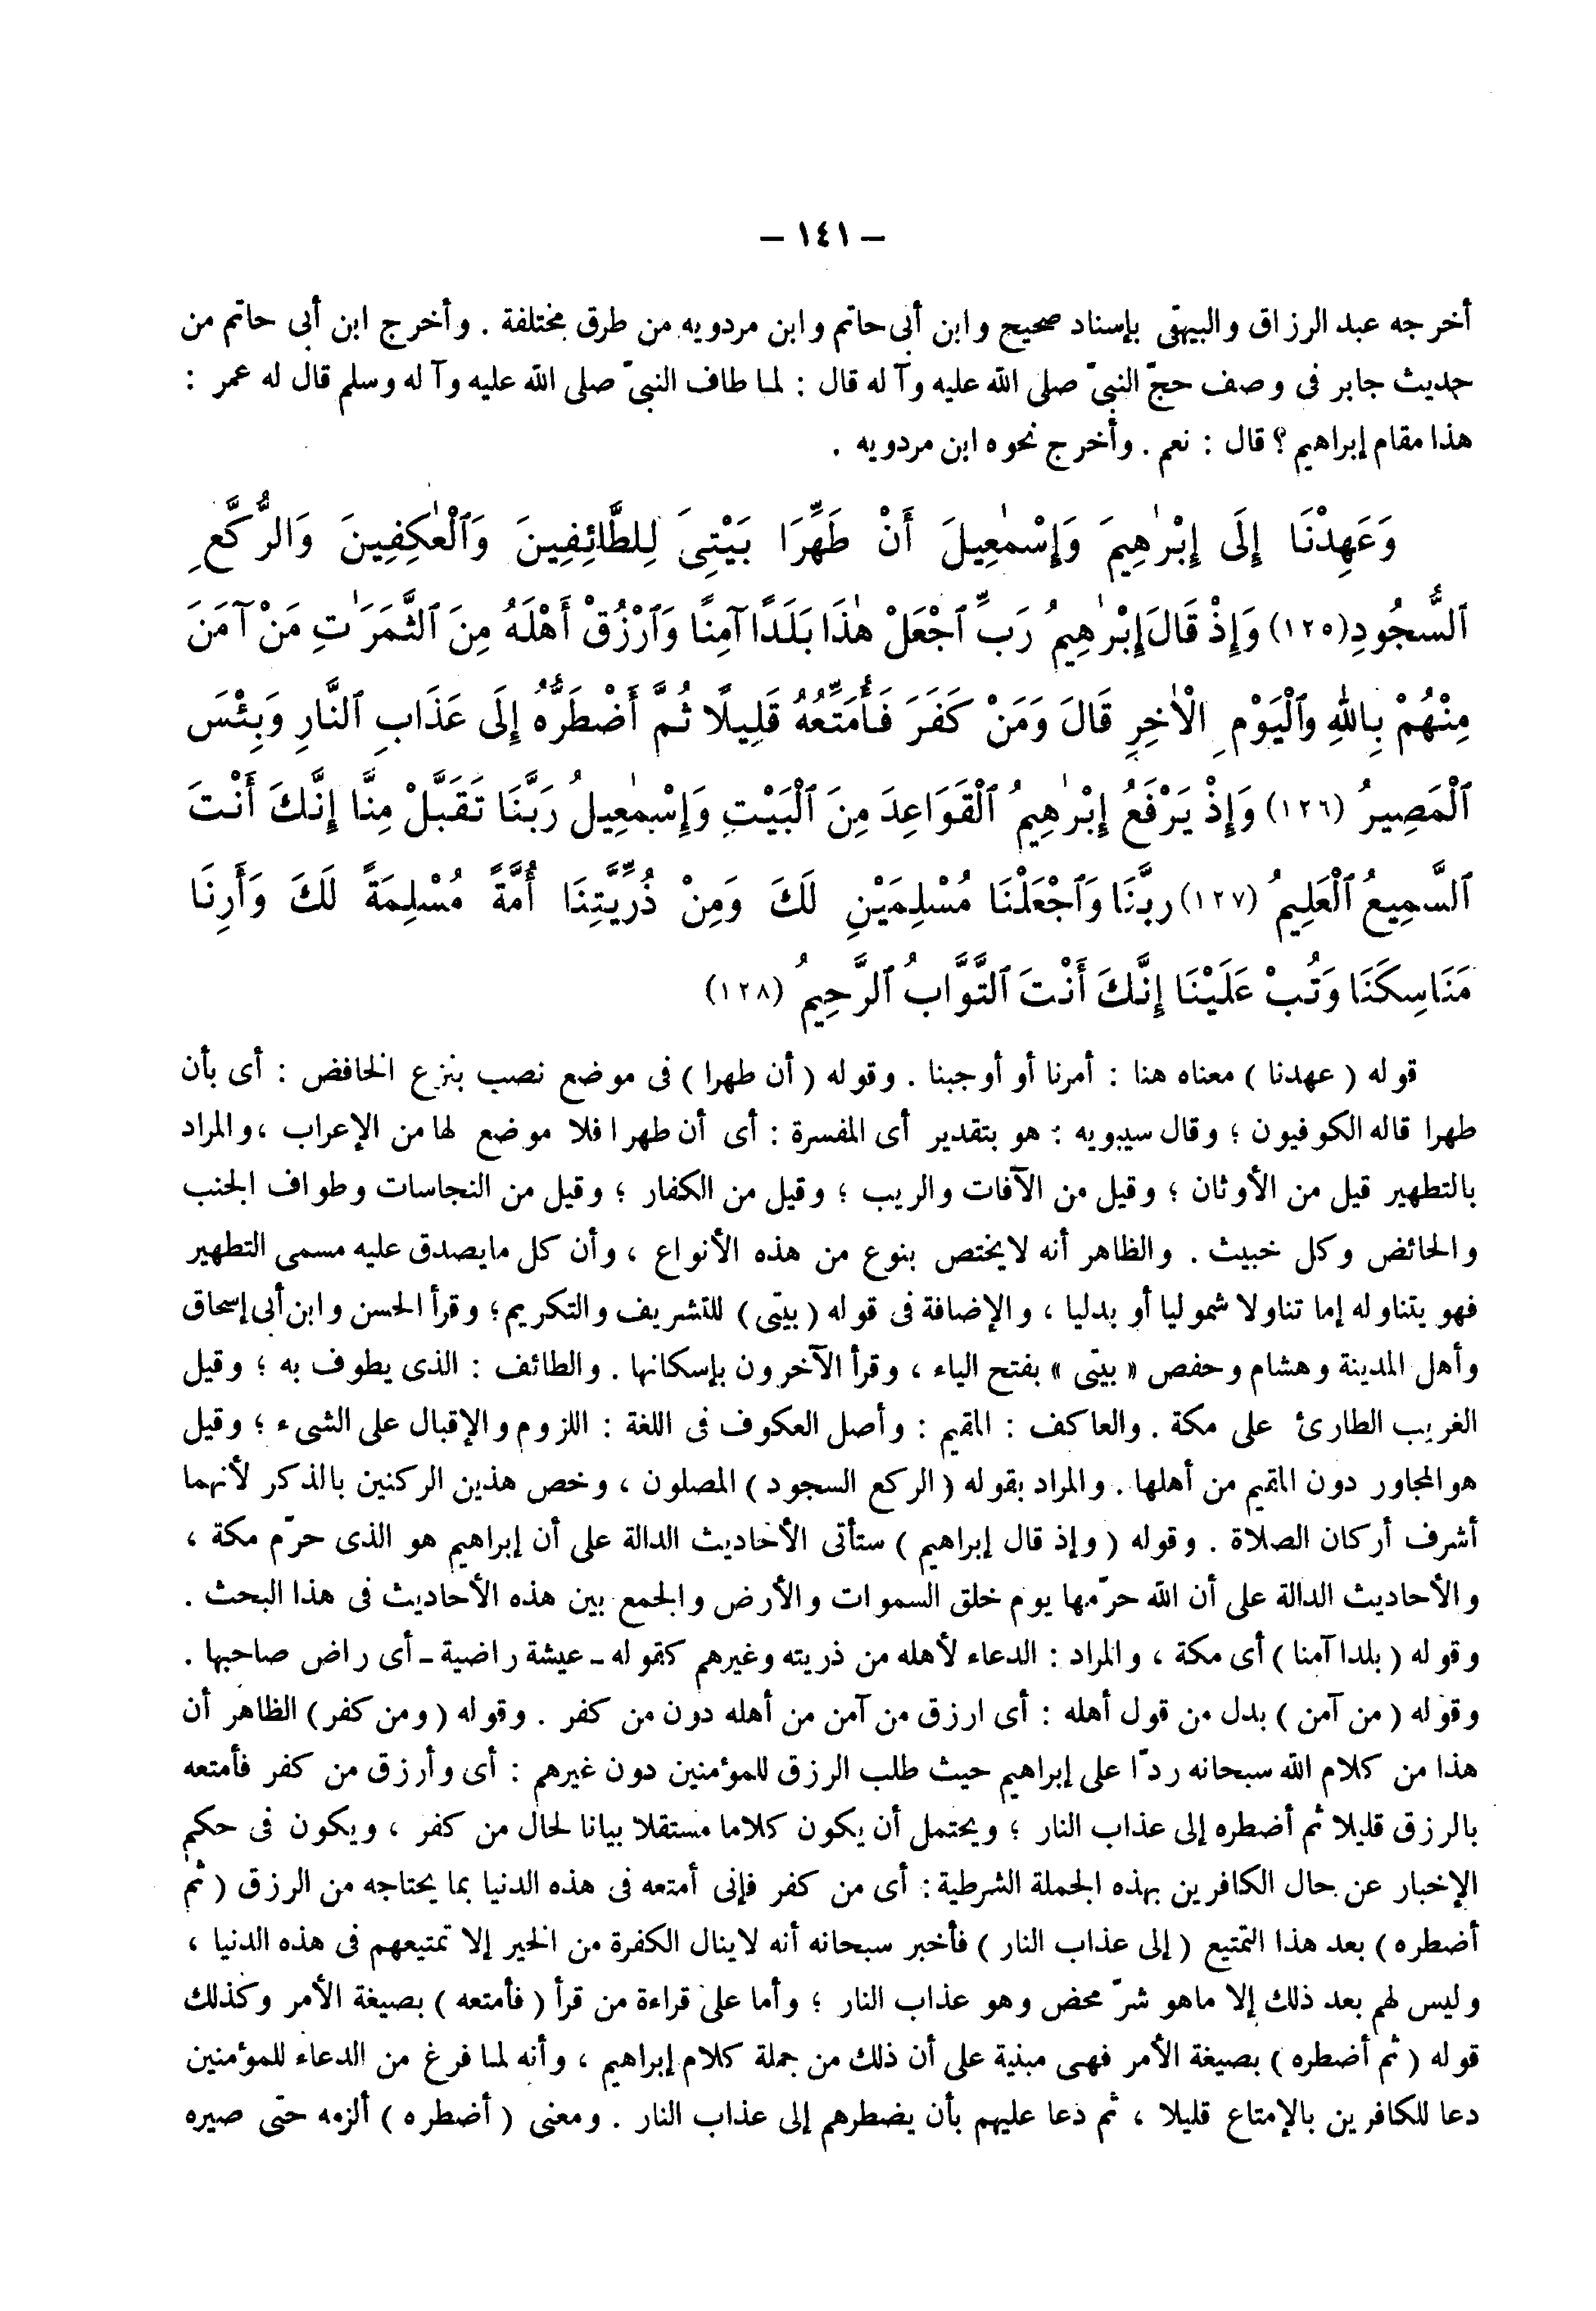 – ١٤١ –
أخرجه عبد الرزاق والبيهقى بإسناد صحيح وابن أبى حاتم وابن مردويه من طرق مختلفة . وأخرج ابن أبى حاتم من
حديث جابر فى وصف حجّ النبىّ صلى الله عليه وآ له قال : لما طاف النبىّ صلى الله عليه وآ له وسلم قال له عمر :
هذا مقام إبراهيم ؟ قال : نعم . وأخرج نحوه ابن مردويه .
وَعَهِدْنَا إِلَى إِبْرٰهِيمَ وَإِسْمٰعِيلَ أَنْ طَهِّرَا بَيْتِىَ لِلطَّائِفِينَ وَٱلْعٰكِفِينَ وَالرُّكَّعِ
ٱلسُّجُودِ (١٢٥) وَإِذْ قَالَ إِبْرٰهِيمُ رَبِّ ٱجْعَلْ هٰذَا بَلَدًا آمِنًا وَٱرْزُقْ أَهْلَهُ مِنَ ٱلثَّمَرَٰتِ مَنْ آمَنَ
مِنْهُمْ بِاللهِ وٱلْيَوْمِ الْأٰخِرِ قَالَ وَمَنْ كَفَرَ فَأُمَتِّعُهُ قَلِيلًا ثُمَّ أَضْطَرُّهُ إِلَى عَذَابِ ٱلنَّارِ وَبِئْسَ
ٱلْمَصِيرُ (١٢٦) وَإِذْ يَرْفَعُ إِبْرٰهِيمُ ٱلْقَوَاعِدَ مِنَ ٱلْبَيْتِ وَإِسْمٰعِيلُ رَبَّنَا تَقَبَّلْ مِنَّا إِنَّكَ أَنْتَ
ٱلسَّمِيعُ ٱلْعَلِيمُ (١٢٧) ربَّنَا وَٱجْعَلْنَا مُسْلِمَيْنِ لَكَ وَمِنْ ذُرِّيَّتِنَا أُمَّةً مُسْلِمَةً لَكَ وَأَرِنَا
مَنَاسِكَنَا وَتُبْ عَلَيْنَا إِنَّكَ أَنْتَ ٱلتَّوَّابُ ٱلرَّحِيمُ (١٢٨)
قوله ( عهدنا ) معناه هنا : أمرنا أو أوجبنا . وقوله ( أن طهرا ) فى موضع نصب بنزع الخافض : أى بأن
طهرا قاله الكوفيون ؛ وقال سيبويه : هو بتقدير أى المفسرة : أى أن طهرا فلا موضع لها من الإعراب ، والمراد
بالتطهير قيل من الأوثان ؛ وقيل من الآفات والريب ؛ وقيل من الكفار ؛ وقيل من النجاسات وطواف الجنب
والحائض وكل خبيث . والظاهر أنه لايختص بنوع من هذه الأنواع ، وأن كل مايصدق عليه مسمى التطهير
فهو يتناوله إما تناولا شموليا أو بدليا ، والإضافة فى قوله ( بيتى ) للتشريف والتكريم ؛ وقرأ الحسن وابن أبى إسحاق
وأهل المدينة وهشام وحفص « بيتى » بفتح الياء ، وقرأ الآخرون بإسكانها . والطائف : الذى يطوف به ؛ وقيل
الغريب الطارئ على مكة . والعاكف : المقيم : وأصل العكوف فى اللغة : اللزوم والإقبال على الشىء ؛ وقيل
هو المجاور دون المقيم من أهلها . والمراد بقوله ( الركع السجود ) المصلون ، وخص هذين الركنين بالذكر لأنهما
أشرف أركان الصلاة . وقوله ( وإذ قال إبراهيم ) ستأتى الأحاديث الدالة على أن إبراهيم هو الذى حرّم مكة ،
والأحاديث الدالة على أن الله حرّمها يوم خلق السموات والأرض والجمع بين هذه الأحاديث فى هذا البحث .
وقوله ( بلدا آمنا ) أى مكة ، والمراد : الدعاء لأهله من ذريته وغيرهم كقوله ـ عيشة راضية ـ أى راض صاحبها .
وقوله ( من آمن ) بدل من قول أهله : أى ارزق من آمن من أهله دون من كفر . وقوله ( ومن كفر ) الظاهر أن
هذا من كلام الله سبحانه ردّا على إبراهيم حيث طلب الرزق للمؤمنين دون غيرهم : أى وأرزق من كفر فأمتعه
بالرزق قليلا ثم أضطره إلى عذاب النار ؛ ويحتمل أن يكون كلاما مستقلا بيانا لحال من كفر ، ويكون فى حكم
الإخبار عن حال الكافرين بهذه الجملة الشرطية : أى من كفر فإنى أمتعه فى هذه الدنيا بما يحتاجه من الرزق ( ثم
أضطره ) بعد هذا التمتيع ( إلى عذاب النار ) فأخبر سبحانه أنه لاينال الكفرة من الخير إلا تمتيعهم فى هذه الدنيا ،
وليس لهم بعد ذلك إلا ماهو شرّ محض وهو عذاب النار ؛ وأما على قراءة من قرأ ( فأمتعه ) بصيغة الأمر وكذلك
قوله ( ثم أضطره ) بصيغة الأمر فهى مبنية على أن ذلك من جملة كلام إبراهيم ، وأنه لما فرغ من الدعاء للمؤمنين
دعا للكافرين بالإمتاع قليلا ، ثم دعا عليهم بأن يضطرهم إلى عذاب النار . ومعنى ( أضطره ) ألزمه حتى صيره